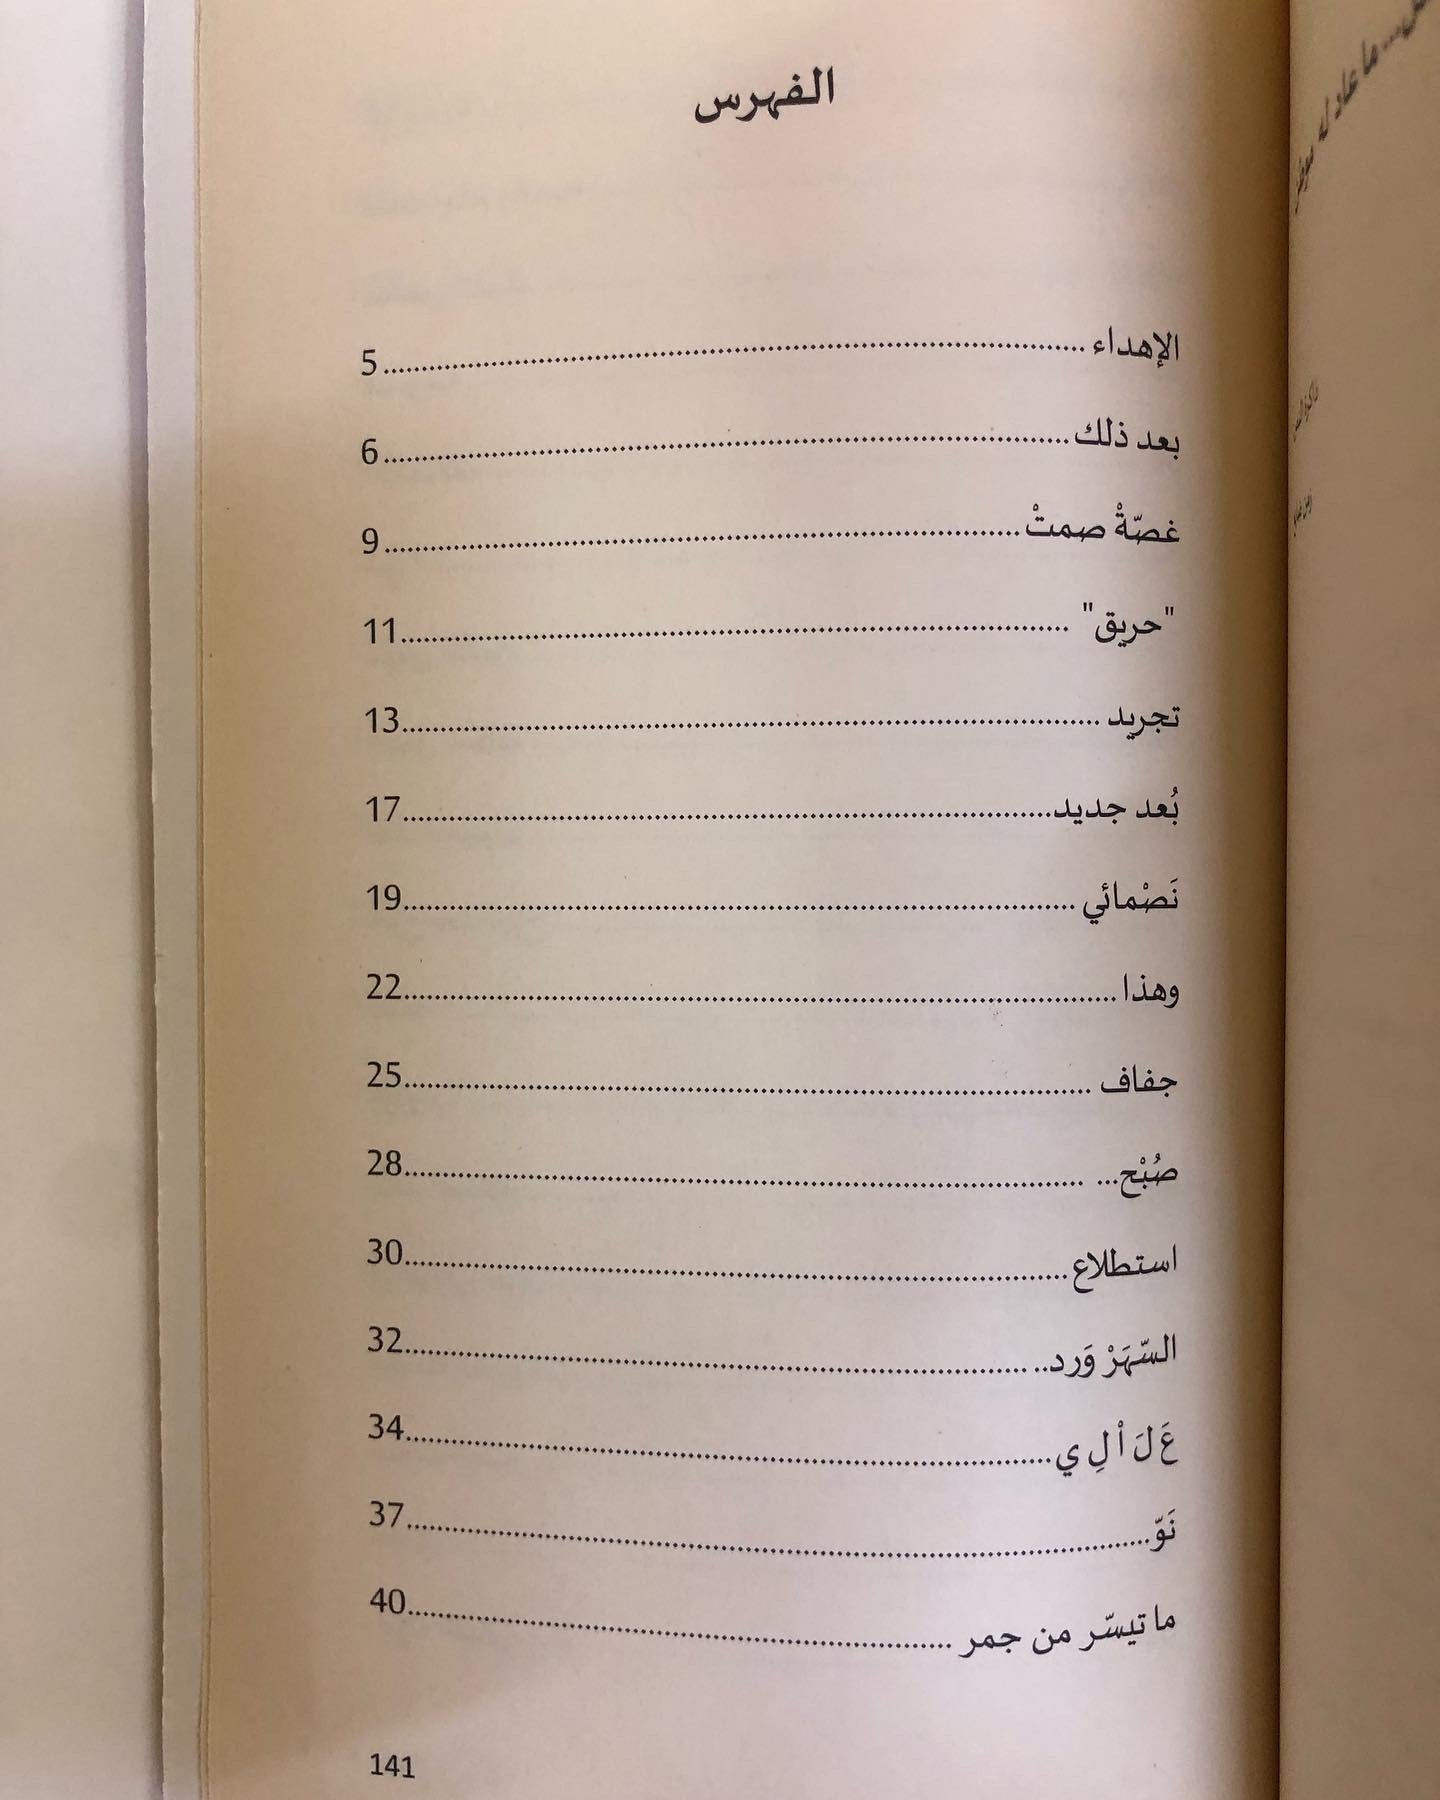 الفهرس
الإهداء........................................5
بعد ذلك........................................6
غصّةْ صمتْ........................................9
"حريق" ........................................11
تجريد ........................................13
بُعد جديد........................................17
نَصْمائي ........................................19
وهذا........................................22
جفاف ........................................25
صُبْح... ........................................28
استطلاع........................................30
السّهَرْ وَرد.. ........................................32
عَ لَ اْ لِ ي........................................34
نَوّ........................................37
ما تيسّر من جمر ........................................40
141